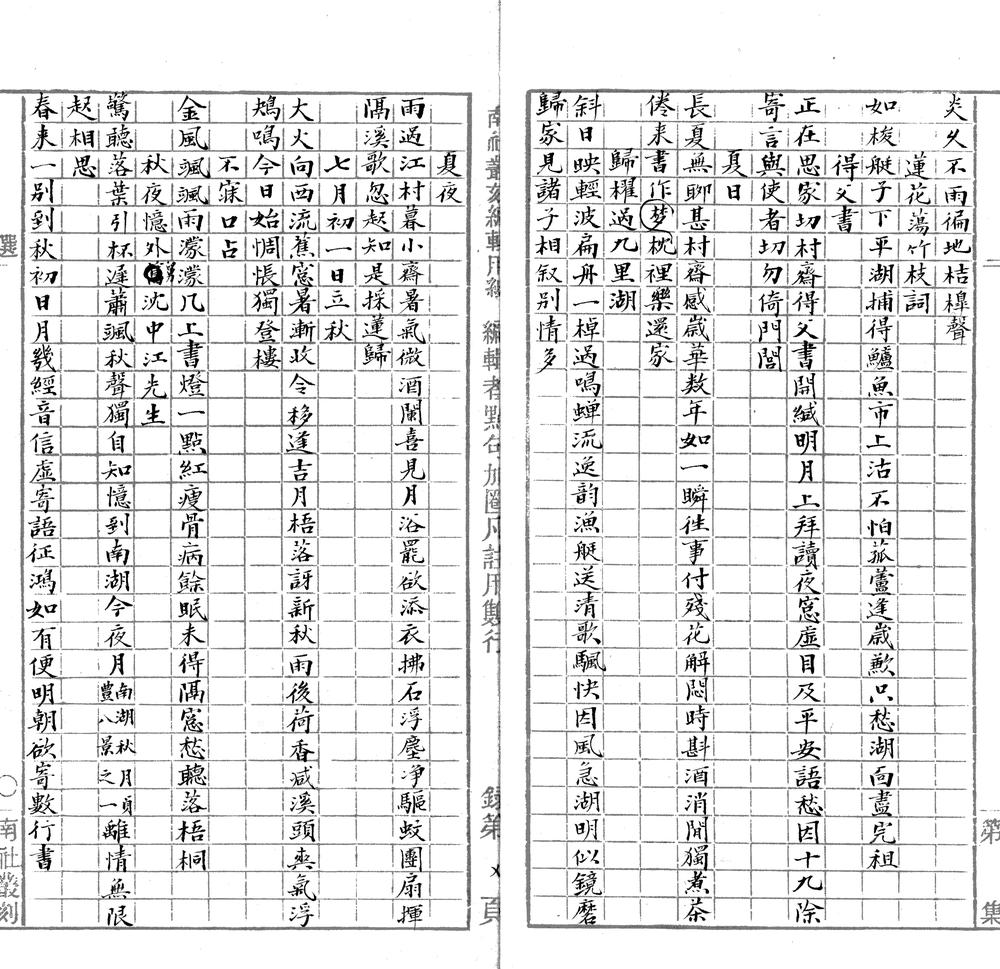 炎久不雨徧地桔槹聲
蓮花蕩竹枝詞
如梭艇子下平湖捕得鱸魚市上沽不怕菰蘆逢歲歉只愁湖面盡完租
得父書
正在思家切村齋得父書開緘明月上拜讀夜窓虛目及平安語愁因十九除
寄言與使者切勿倚門閭
夏日
長夏無聊甚村齋感歲華数年如一瞬往事付殘花解悶時斟酒消閒獨煮茶
倦来書作枕夢裡樂還家
歸櫂過九里湖
斜日映輕波扁舟一棹過鳴蟬流逸韵漁艇送清歌颿快因風急湖明似鏡磨
歸家見諸子相叙別情多
夏夜
雨過江村暮小齋暑氣微酒闌喜見月浴罷欲添衣拂石浮塵净驅蚊團扇揮
隔溪歌忽起知是採蓮歸
七月初一日立秋
大火向西流蕉窓暑漸收令移逢吉月梧落訝新秋雨後荷香咸溪頭爽氣浮
鴂鳴今日始惆悵獨登樓
不寐口占
金風颯颯雨濛濛几上書燈一點紅瘦骨病餘眠未得隔窓愁聽落梧桐
秋夜憶外舅沈中江先生
驚聽落葉引杯遲蕭颯秋聲獨自知憶到南湖今夜月南湖秋月爲豐八景之一離情無限
起相思
春来一別到秋初日月幾經音信虛寄語征鴻如有便明朝欲寄數行書
南社叢刻編輯用紙 編輯者點句加圈凡註用雙行
錄第 頁
二
第 集
選
南社叢刻